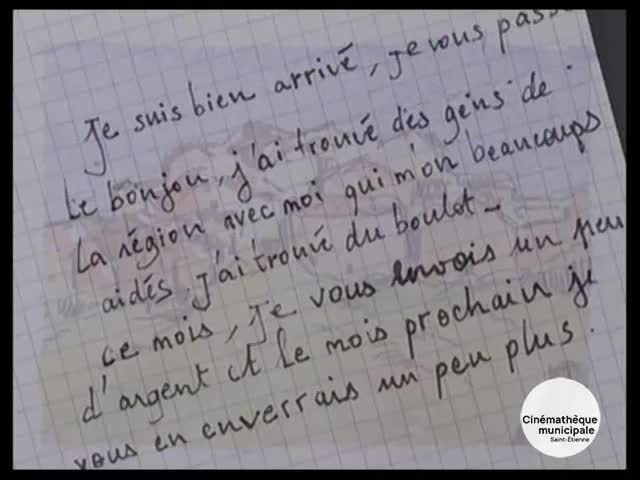 Je suis bien arrivé, je vous passe
le bonjou, j'ai trouvé des gens de
la région avec moi qui m'on beaucoups
aidés. j'ai trouvé du boulot_
ce mois, je vous envois un peu
d'argent et le mois prochain je
vous en enverrais un peu plus.
Cinémathèque
municipale
Saint-Étienne